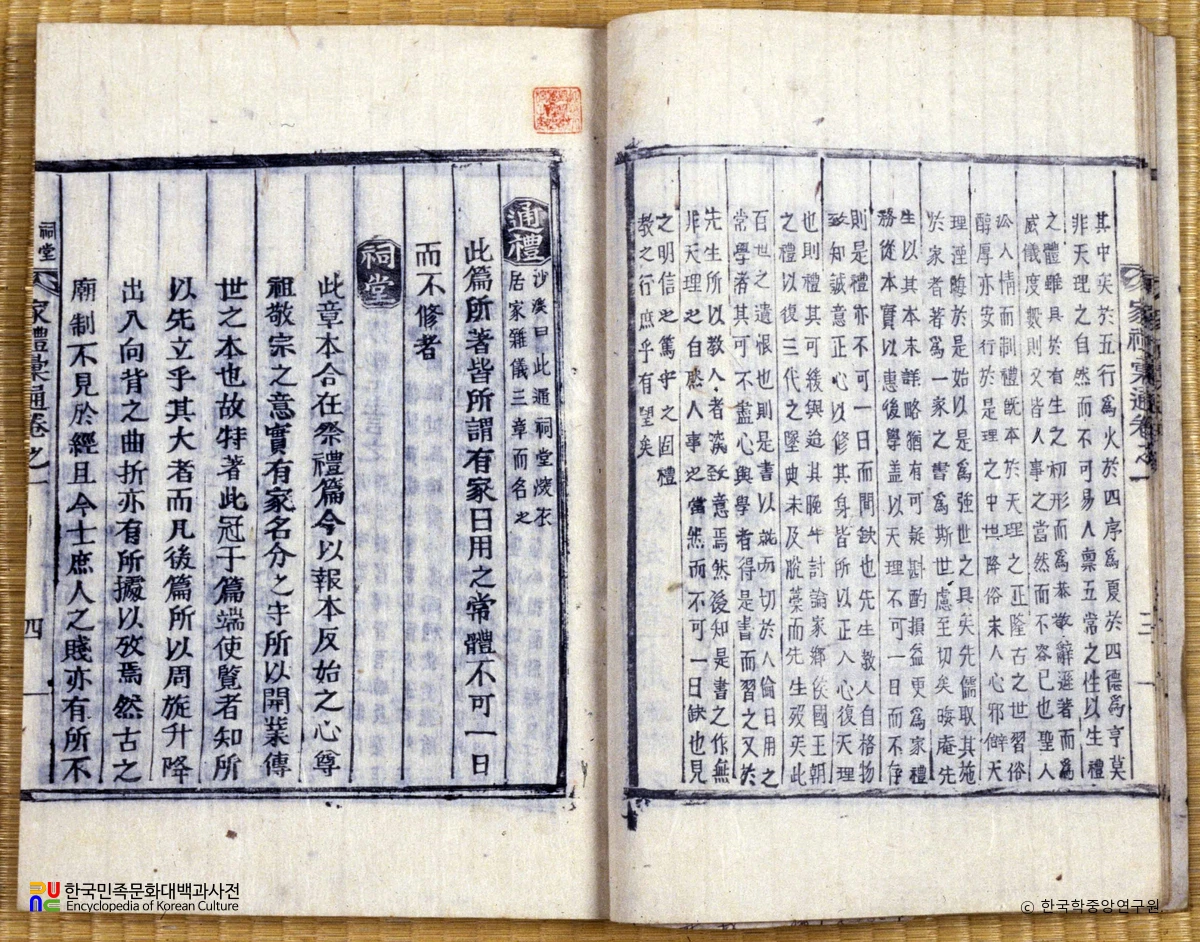 家礼彙通卷之一
三
其中矣於五行爲火於四序爲夏於四德爲亨莫
非天理之自然而不可易人稟五常之性以生禮
之體雖具於有生之初形而爲恭敬辭遜著而爲
威儀度數則又皆人事之當然而不容已也聖人
沿人情而制禮旣本於天理之正隆古之世習俗
醇厚亦安行於是理之中世降俗末人心邪僻天
理湮晦於是始以是爲強世之具矣先儒取其施
於家者著爲一家之書爲斯世慮至切矣晦庵先
生以其本末詳略猶有可疑斟酌損益更爲家禮
務從本實以惠後學盖以天理不可一日而不存
則是禮亦不可一日而間缺也先生教人自格物
致知誠意正心以修其身皆所以正人心復天理
也則禮其可後與迨其晚年討論家鄕侯國王朝
之禮以復三代之墜典未及脫藁而先生歿矣此
百世之遺恨也則是書以就而切於人倫日用之
常學者其可不盡心與學者得是書而習之又於
先生所以教人者深致意焉然後知是書之作無
非天理之自然人事之當然而不可一日缺也見
之明信之篤守之固禮
教之行庶乎有望矣
通禮
沙溪曰此通祠堂㴱衣
居家雜儀三章而名之
此篇所著皆所謂有家日用之常體不可一日
而不修者
祠堂
此章本合在祭禮篇今以報本反始之心尊
祖敬宗之意實有家名分之守所以開業傳
世之本也故特著此冠于篇端使覽者知所
以先立乎其大者而凡後篇所以周旋升降
出入向背之曲折亦有所據以攷焉然古之
廟制不見於經且今士庶人之賤亦有所不
祠堂
家禮彙通卷之一
四
한국민족문화대백과사전
Encyclopedia of Korean Culture
© 한국학중앙연구원